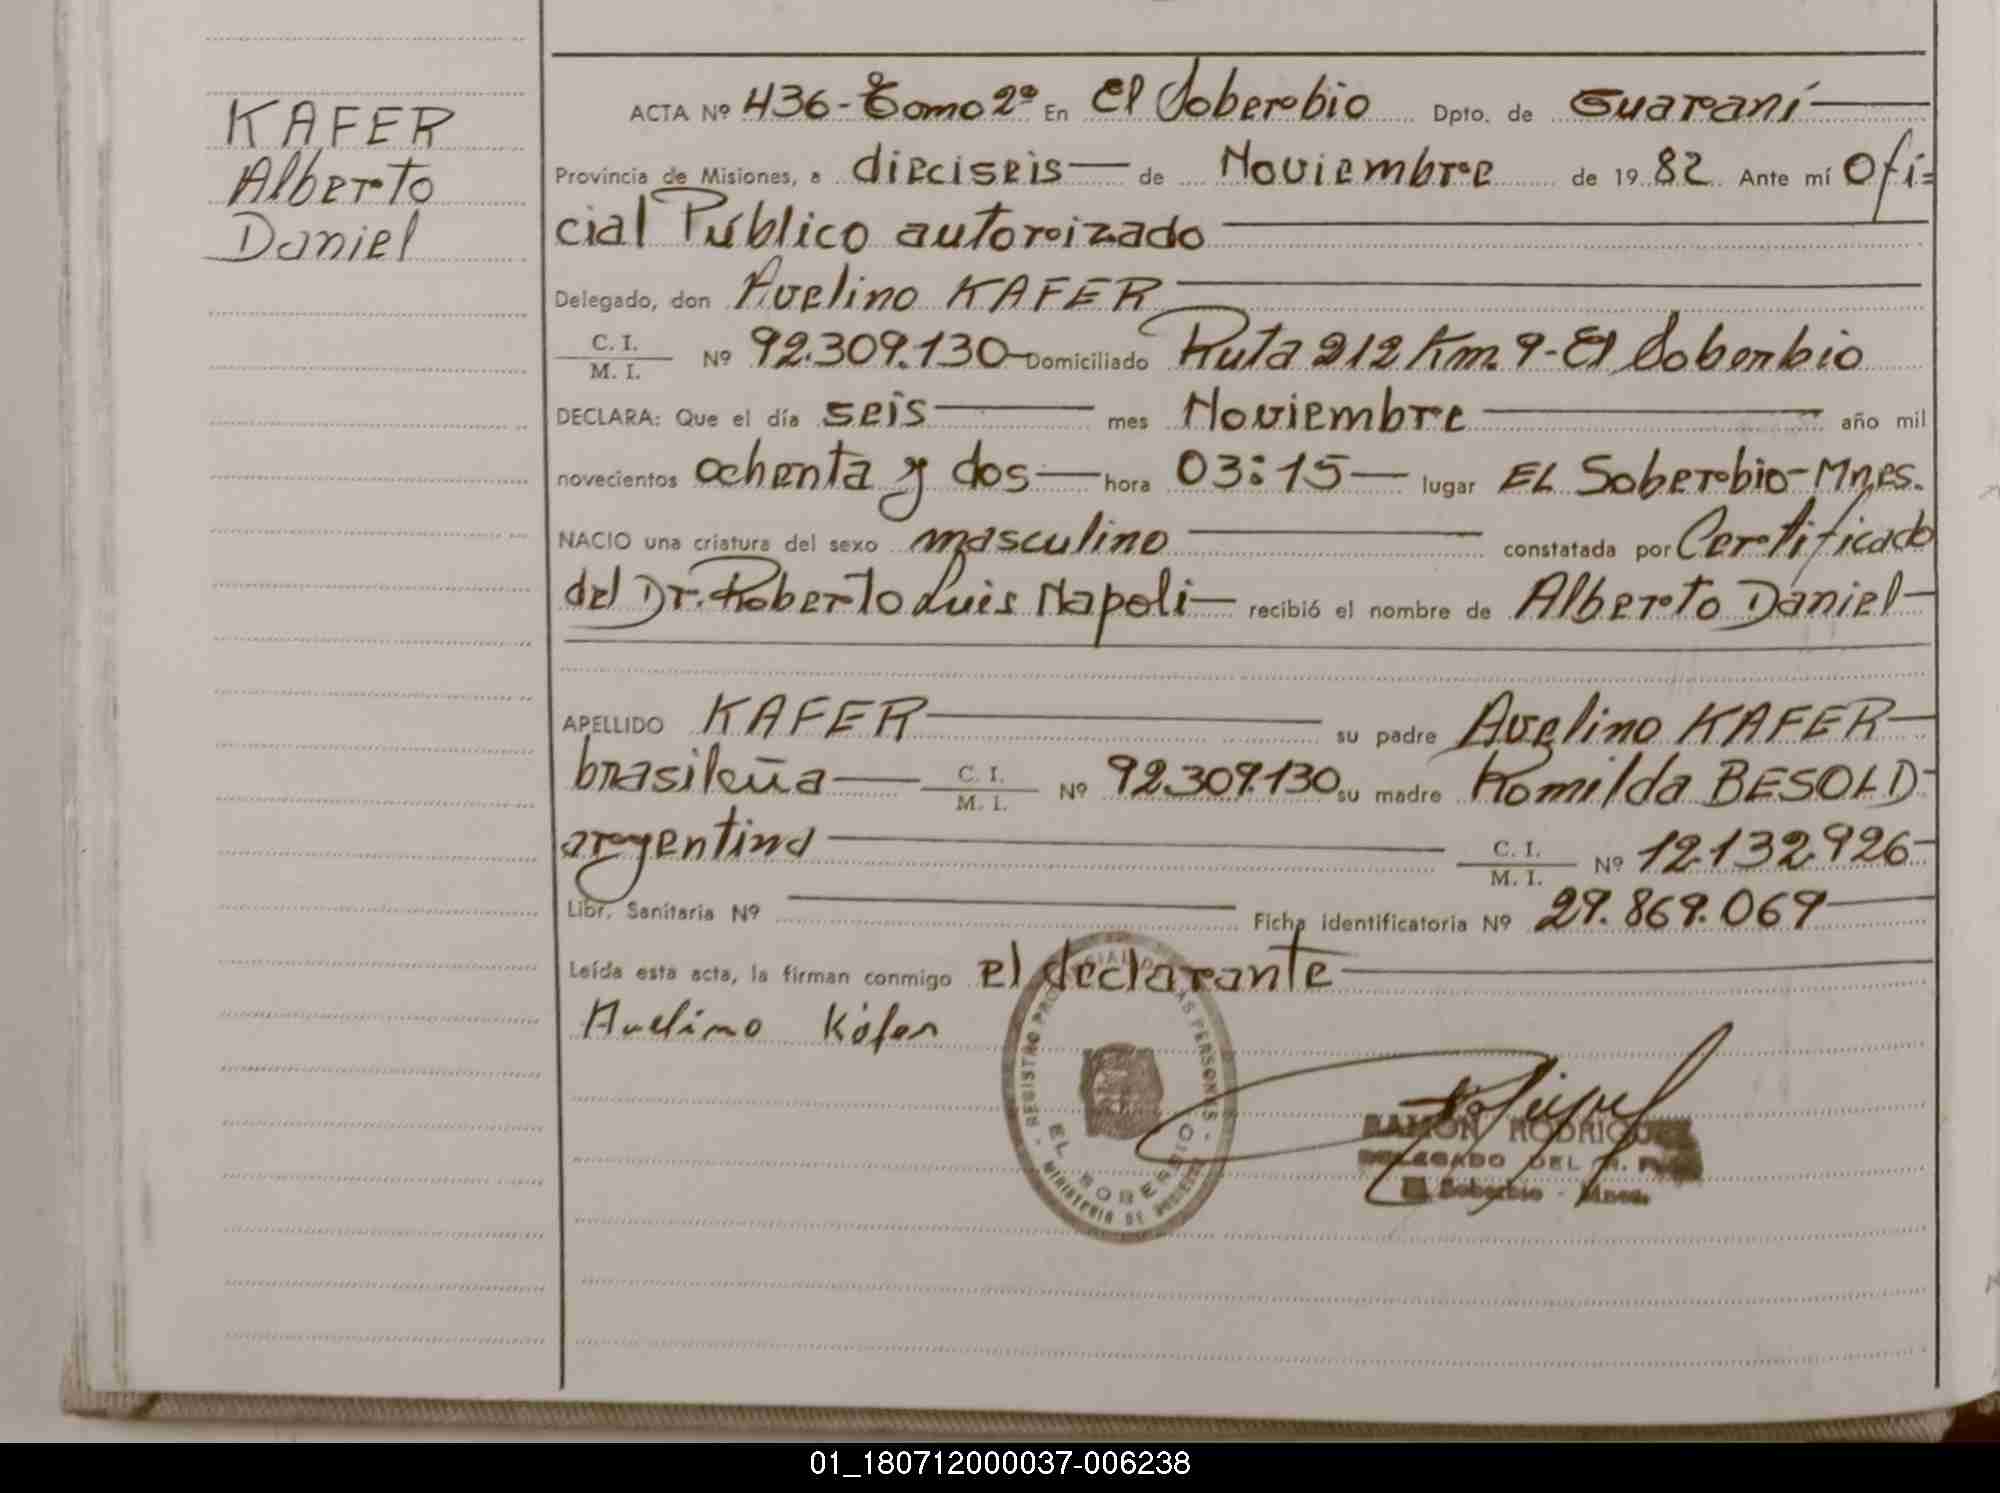 KAFER
Alberto
Daniel
ACTA Nº 436- Tomo 2º En El Soberbio Dpto. de Guaraní
Provincia de Misiones, a dieciseis de Noviembre de 1982 Ante mí Ofi=
cial Público autorizado
Delegado, don Avelino KAFER
C. I.
M. I. Nº 92.309.130 Domiciliado Ruta 212 Km. 9- El Soberbio
DECLARA: Que el día seis mes Noviembre año mil
novecientos ochenta y dos hora 03:15 lugar EL Soberbio-Mnes.
NACIO una criatura del sexo masculino constatada por Certificado
del Dr. Roberto Luis Napoli recibió el nombre de Alberto Daniel
APELLIDO KAFER su padre Avelino KAFER
brasileña C. I.
M. I. Nº 92.309.130 su madre Romilda BESOLD
argentina C. I.
M. I. Nº 12.132.926
Libr. Sanitaria Nº Ficha identificatoria Nº 29.869.069
Leída esta acta, la firman conmigo el declarante
Avelino Káfer
REGISTRO DE LAS PERSONAS
EL SOBERBIO
MINISTERIO DE
RAMON RODRIGUEZ
DELEGADO DEL
Soberbio - Mnes.
01_180712000037-006238